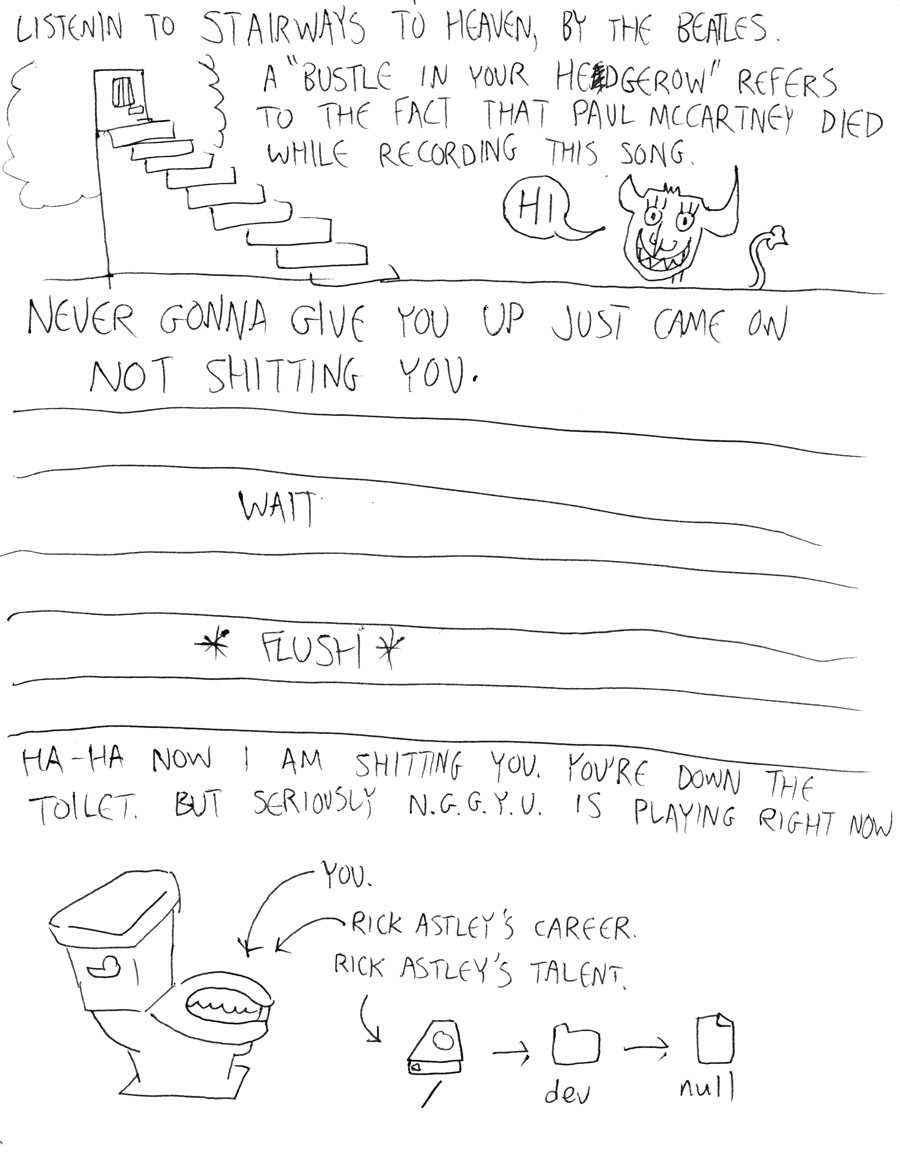 LISTENIN TO STAIRWAYS TO HEAVEN, BY THE BEATLES.
A "BUSTLE IN YOUR HEDGEROW" REFERS
TO THE FACT THAT PAUL MCCARTNEY DIED
WHILE RECORDING THIS SONG.
HI
NEVER GONNA GIVE YOU UP JUST CAME ON
NOT SHITTING YOU.
WAIT
* FLUSH *
HA-HA NOW I AM SHITTING YOU. YOU'RE DOWN THE
TOILET. BUT SERIOUSLY N.G.G.Y.U. IS PLAYING RIGHT NOW
YOU.
RICK ASTLEY'S CAREER.
RICK ASTLEY'S TALENT.
/ dev null